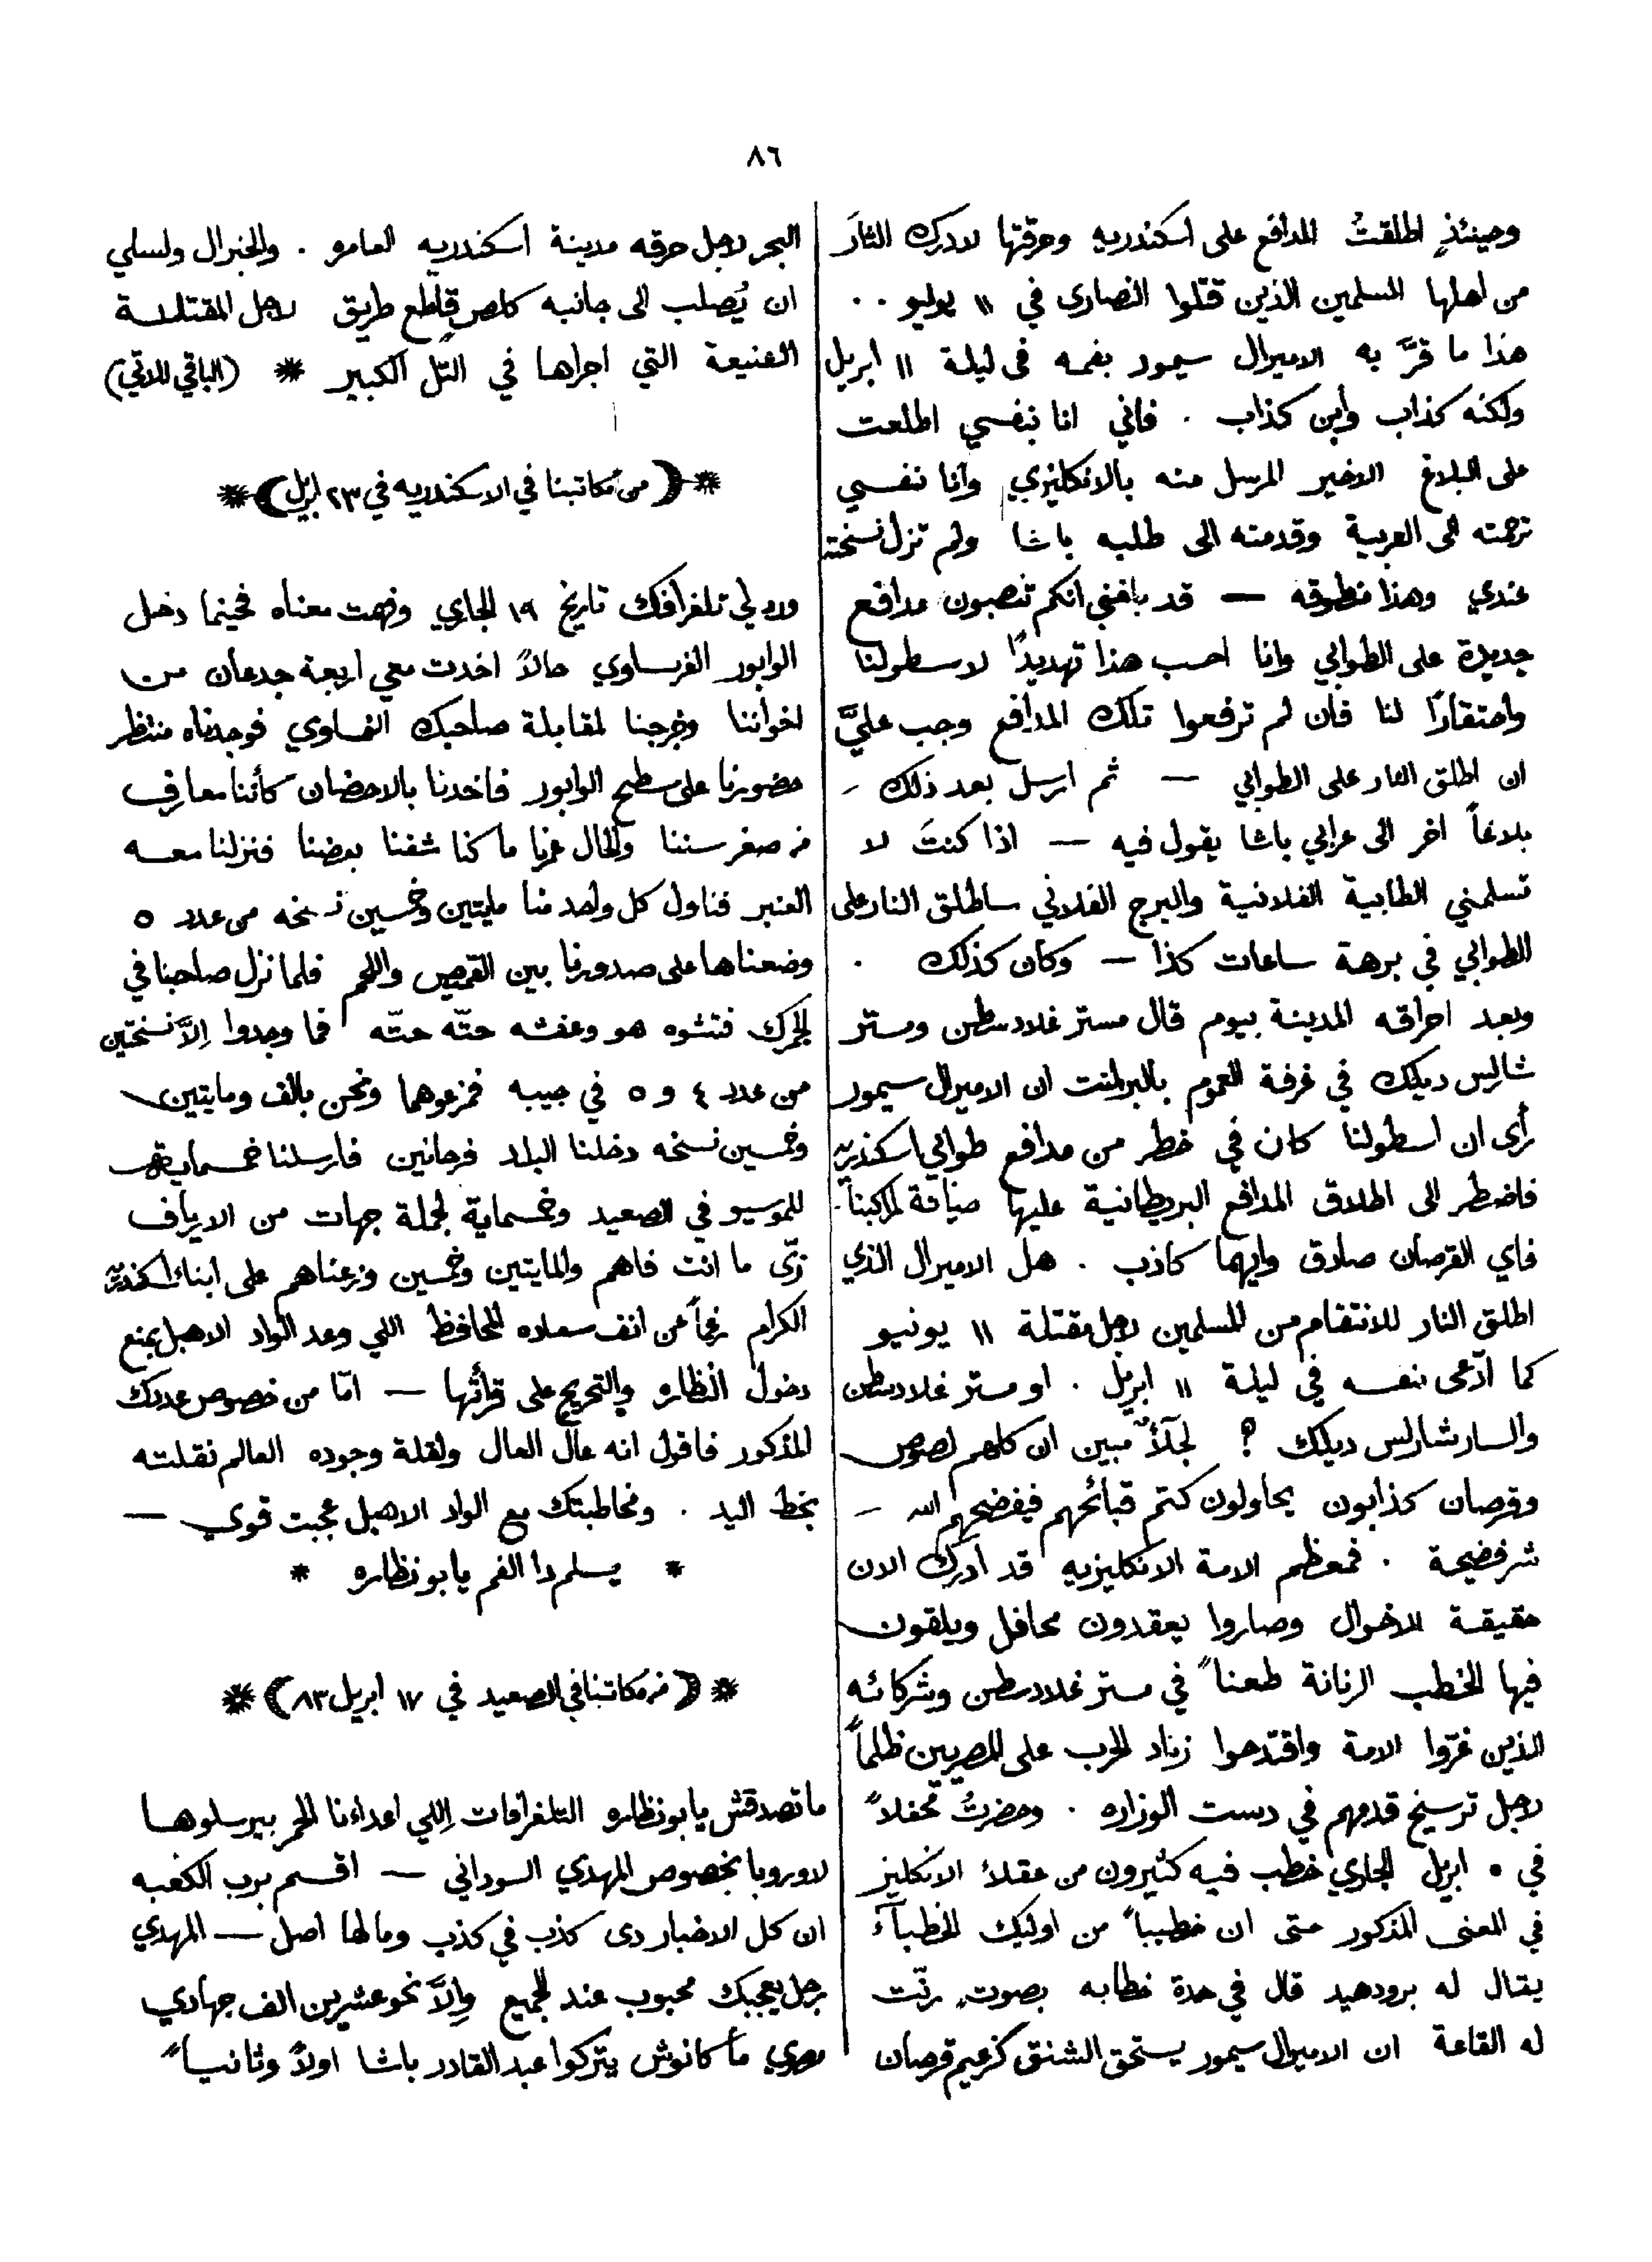 ٨٦
وحينئذٍ اطلقتُ المدافع على اسكندريه وحرقتها لادرك الثأر
من اهلها المسلمين الذين قتلوا النصارى في ١١ يوليو ٠٠
هذا ما قرَّ به الاميرال سيمور بفمه فى ليلة ١١ ابريل
ولكنه كذاب وأبن كذاب ٠ فاني انا بنفسي اطلعت
على البلاغ الاخير المرسل منه بالانكليزي وانا نفسي
ترجمته الى العربية وقدمته الى طلبه باشا ولم تزل نسخته
عندي وهذا منطوقه — قد بلغني انكم تنصبون مدافع
جديدة على الطوابي وانا احسب هذا تهديدًا لاسطولنا
واحتقارًا لنا فان لم ترفعوا تلك المدافع وجب عليَّ
ان اطلق النار على الطوابي — ثم ارسل بعد ذلك
بلاغاً اخر الى عرابي باشا يقول فيه — اذا كنتَ لا
تسلمني الطابية الفلانية والبرج الفلاني ساطلق النار على
الطوابي في برهة ساعات كذا — وكان كذلك ٠
وبعد احراقه المدينة بيوم قال مستر غلادسطن ومستر
شارلس ديلك في غرفة العموم بالبرلمنت ان الاميرال سيمور
رأى ان اسطولنا كان في خطر من مدافع طوابي اسكندريه
فاضطر الى اطلاق المدافع البريطانية عليها صيانة لمراكبنا
فاي القرصان صادق وايهما كاذب ٠ هل الاميرال الذي
اطلق النار للانتقام من المسلمين لاجل مقتلة ١١ يونيو
كما ادّعى نفسه في ليلة ١١ ابريل ٠ او مستر غلادسطن
والسار شارلس ديلك ؟ مبين ان كلهم لصوص
وقرصان كذابون يحاولون كتم قبائحهم فيفضحهم الله —
شر فضيحة ٠ فمعظم الامة الانكليزيه قد ادرك الان
حقيقة الاحوال وصاروا يعقدون محافل ويلقون
فيها الخطب الرنانة طعناً في مستر غلادسطن وشركائه
الذين غرّوا الامة واقتدحوا زناد الحرب على المصريين ظلماً
لاجل ترسيخ قدمهم في دست الوزاره ٠ وحضرتُ محفلاً
في ٥ ابريل الجاري خطب فيه كثيرون من عقلاء الانكليز
في المعنى المذكور حتى ان خطيباً من اوليك الخطبآء
يقال له برودهيد قال في حدة خطابه بصوتٍ رنّت
له القاعة ان الاميرال سيمور يستحق الشنق كزعيم قرصان
البحر لاجل حرقه مدينة اسكندريه العامره ٠ والجنرال ولسلي
ان يُصلب الى جانبه كلص قاطع طريق لاجل المقتلة
الفنيعة التي اجراها في التل الكبير * (الباقي للاتي)
*(من مكاتبنا في الاسكندريه في ٢٣ ابريل)*
ورد لي تلغرافك تاريخ ١٩ الجاري وفهمت معناه فحينما دخل
الوابور الفرنساوي حالاً اخدت معي اربعة جدعان من
اخواننا وخرجنا لمقابلة صاحبك النمساوي فوجدناه منتظر
حضورنا على سطح الوابور فاخدنا بالاحضان كأننا معارف
من صغر سننا والحال عمرنا ما كنا شفنا بعضنا فنزلنا معه
العنبر فناول كل واحد منا مايتين وخمسين نسخه من عدد ٥
وضعناها على صدورنا بين القميص واللحم فلما نزل صاحبنا في
الجمرك فتشوه هو وعفشه حتّه حتّه فما وجدوا إلاَّ نسختين
من عدد ٤ و ٥ في جيبه فمزعوهما ونحن بالف ومايتين
وخمسين نسخه دخلنا البلد فرحانين فارسلنا خمسماية
للموسيو في الصعيد وخمسماية لجملة جهات من الارياف
زيّ ما انت فاهم والمايتين وخمسين وزعناهم على ابناء اسكندريه
الكرام رغماً عن انف سعاده المحافظ اللي وعد الواد الاهبل بمنع
دخول النظاره والتحريج على قرأتها — امّا من خصوص عددك
المذكور فاقول انه عال العال ولقلة وجوده العالم نقلته
بخط اليد ٠ ومخاطبتك مع الواد الاهبل عجبت قوي —
* يسلم دا الفم يا بو نظاره *
*(من مكاتبنا في الصعيد في ١٧ ابريل ٨٣)*
ما تصدقش يا بو نظاره التلغرافات اللي اعداءنا الحمر بيرسلوها
لاوروبا بخصوص المهدي السوداني — اقسم برب الكعبه
ان كل الاخبار دى كذب في كذب وما لها اصل — المهدي
رجل يعجبك محبوب عند الجميع وإلاَّ نحو عشرين الف جهادي
مصري ما كانوش بيتركوا عبد القادر باشا اولاً وثانياً